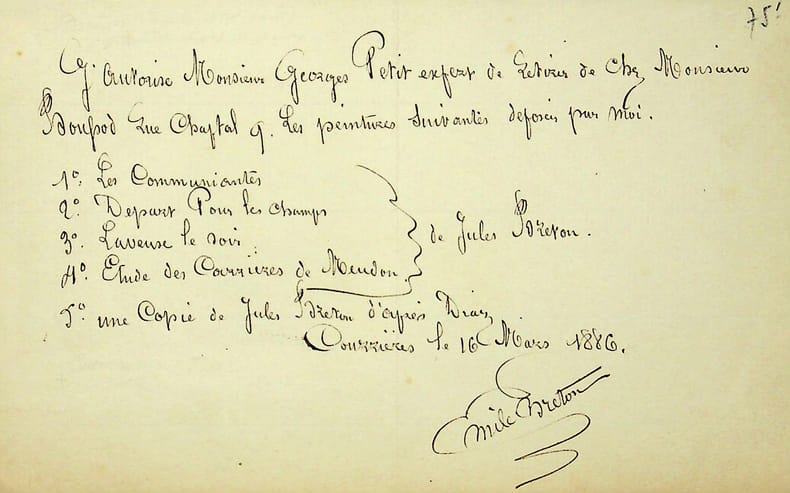 75!
J'autorise Monsieur Georges Petit expert de retirer de chez Monsieur
Boussod rue Chaptal 9. Les peintures suivantes deposés par moi.
1º. Les Communiantes
2º. Depart Pour les champs
3º. Laveuse le soir.
de Jules Breton.
4º. Etude des Carrières de Meudon.
5º une Copie de Jules Breton d'après Diaz
Courrières le 16 Mars 1886.
Emile Breton